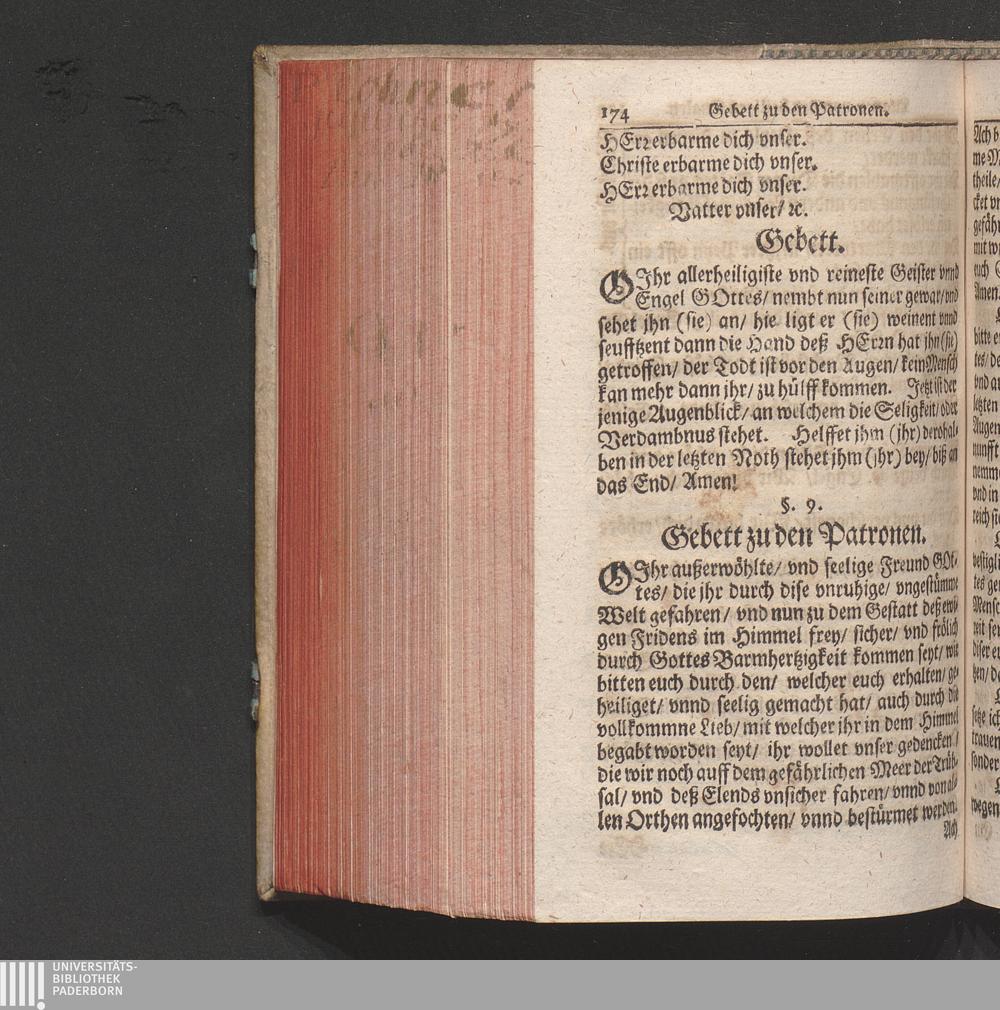 174 Gebett zu den Patronen.
HErr erbarme dich vnser.
Christe erbarme dich vnser.
HErr erbarme dich vnser.
Vatter vnser/ ꝛc.
Gebett.
O Ihr allerheiligiste vnd reineste Geister vnnd
Engel GOttes/ nembt nun seiner gewar/ vnd
sehet jhn (sie) an/ hie ligt er (sie) weinent vnnd
seufftzent dann die Hand deß HErrn hat jhn (sie)
getroffen/ der Todt ist vor den Augen/ kein Mensch
kan mehr dann jhr/ zu hülff kommen. Jetzt ist der
jenige Augenblick/ an welchem die Seligkeit/ oder
Verdambnus stehet. Helffet jhm (jhr) derohal-
ben in der letzten Noth stehet jhm (jhr) bey/ biß an
das End/ Amen!
§. 9.
Gebett zu den Patronen.
O Ihr außerwöhlte/ vnd seelige Freund GOt-
tes/ die jhr durch dise vnruhige/ vngestümme
Welt gefahren/ vnd nun zu dem Gestatt deß ewi-
gen Fridens im Himmel frey/ sicher/ vnd frölich
durch Gottes Barmhertzigkeit kommen seyt/ wir
bitten euch durch den/ welcher euch erhalten/ ge-
heiliget/ vnnd seelig gemacht hat/ auch durch die
vollkommne Lieb/ mit welcher jhr in dem Himmel
begabt worden seyt/ ihr wollet vnser gedencken/
die wir noch auff dem gefährlichen Meer der Trüb-
sal/ vnd deß Elends vnsicher fahren/ vnnd von al-
len Orthen angefochten/ vnnd bestürmet werden.
Ach
UNIVERSITÄTS-
BIBLIOTHEK
PADERBORN